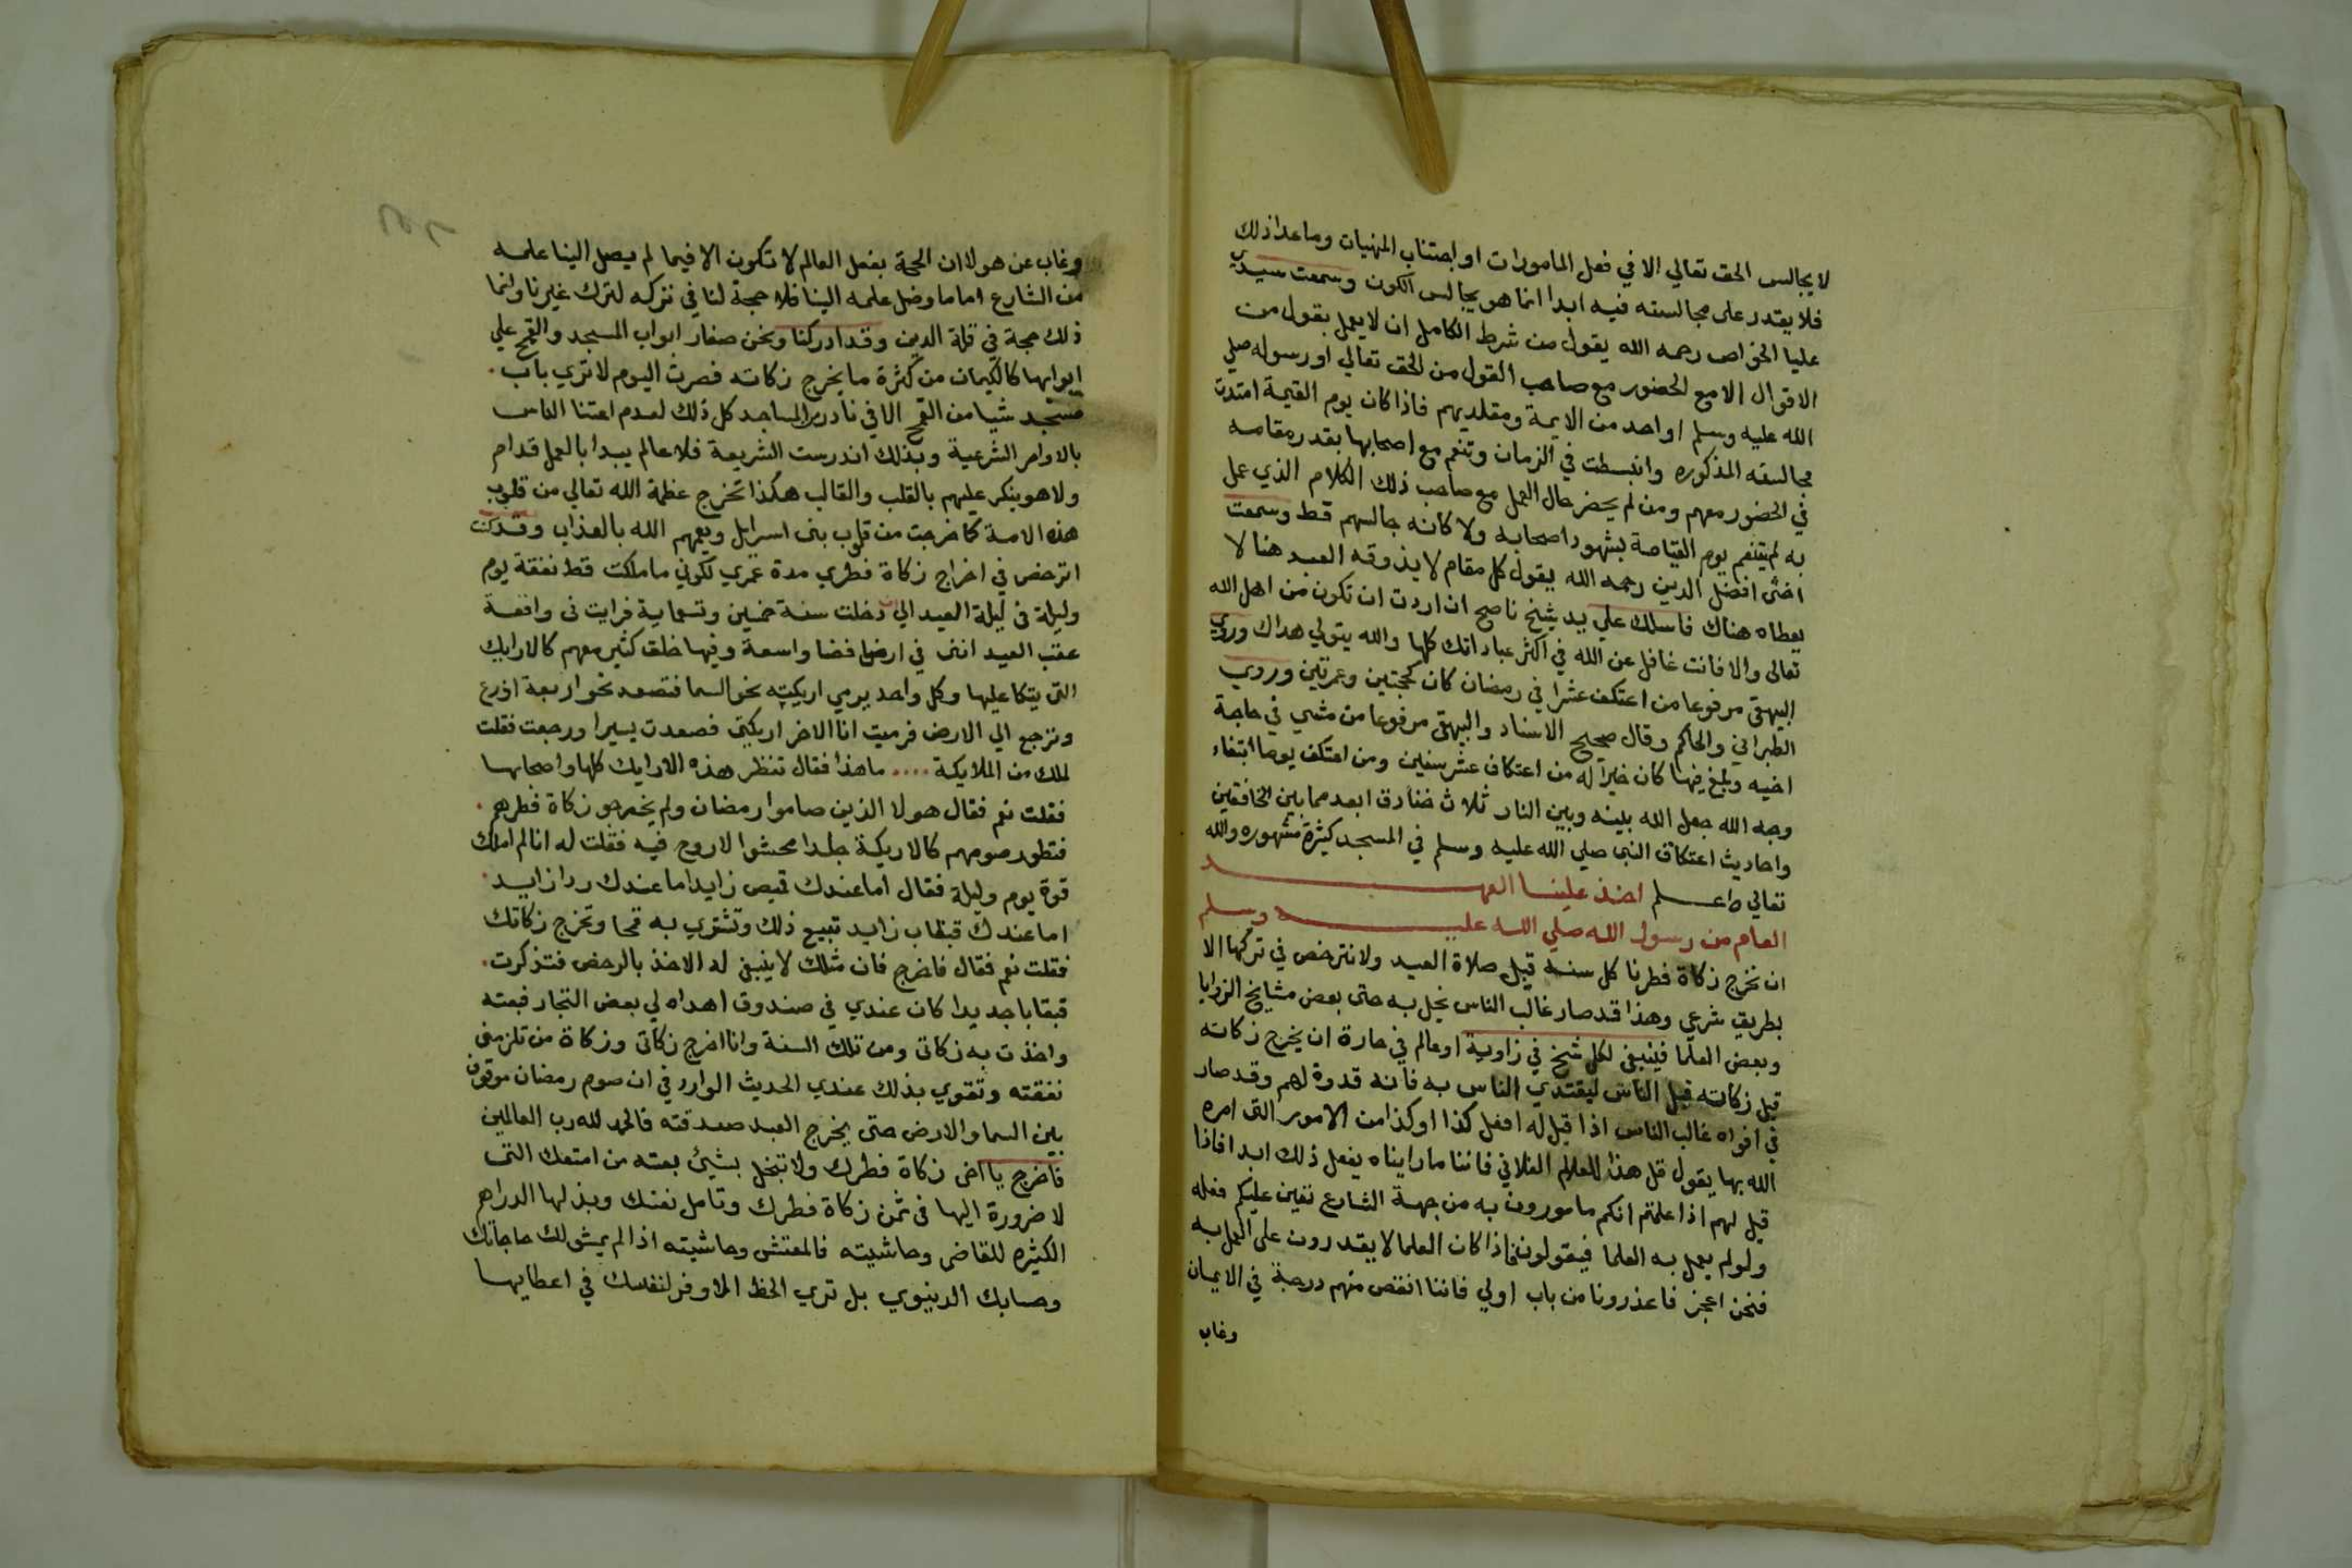 لا يجالس الحق تعالي الا في فعل المامورات او اجتناب المنهيات وما عدا ذلك
فلا يقدر على مجالسته فيه ابدا انما هو يجالس الكون وسمعت سيدي
عليا الخواص رحمه الله يقول من شرط الكامل ان لا يعمل بقول من
الاقوال الا مع الحضور مع صاحب القول من الحق تعالي او رسوله صلي
الله عليه وسلم او احد من الايمة ومقلديهم فاذا كان يوم القيمة امتدت
مجالسته المذكوره وانبسطت في الزمان وتنعم مع اصحابها بقدر مقامه
في الحضور معهم ومن لم يحضر حال العمل مع صاحب ذلك الكلام الذي عمل
به لم يتنعم يوم القيامة بشهود اصحابه ولا كانه جالسهم قط وسمعت
اخي افضل الدين رحمه الله يقول كل مقام لا يذوقه العبد هنا لا
يعطاه هناك فاسلك علي يد شيخ ناصح ان اردت ان تكون من اهل الله
تعالى والا فانت غافل عن الله في اكثر عباداتك كلها والله يتولي هداك وروي
البيهقي مرفوعا من اعتكف عشرا في رمضان كان كحجتين وعمرتين وروي
الطبراني والحاكم وقال صحيح الاسناد والبيهقي مرفوعا من مشي في حاجة
اخيه وبلغ فيها كان خيرا له من اعتكاف عشر سنين ومن اعتكف يوما ابتغاء
وجه الله جعل الله بينه وبين النار ثلاث خنادق ابعد مما بين الخافقين
واحاديث اعتكاف النبي صلي الله عليه وسلم في المسجد كثيرة مشهوره والله
تعالي واعلم اخذ علينا العهد
العام من رسول الله صلي الله عليه وسلم
ان نخرج زكاة فطرنا كل سنة قبل صلاة العيد ولا نترخص في تركها الا
بطريق شرعي وهذا قد صار غالب الناس يخل به حتى بعض مشايخ الزوايا
وبعض العلما فينبغي لكل شيخ في زاوية او عالم في حارة ان يخرج زكاته
قبل زكاته قبل الناس ليقتدي الناس به فانه قدوة لهم وقد صار
في افواه غالب الناس اذا قيل له افعل كذا او كذا من الامور التي امره
الله بها يقول قل هذا للعالم الفلاني فاننا ما رايناه يفعل ذلك ابدا فاذا
قيل لهم اذا علمتم انكم مامورون به من جهة الشارع تعين عليكم فعله
ولو لم يعمل به العلما فيقولون فاذا كان العلما لا يقدرون على العمل به
فنحن اعجز فاعذرونا من باب اولي فاننا انقص منهم درجة في الايمان
وغاب
وغاب عن هولا ان الحجة بفعل العالم لا تكون الا فيما لم يصل الينا علمه
من الشارع اما ما وصل علمه الينا فلا حجة لنا في تركه لترك غيرنا وانما
ذلك حجة في قلة الدين وقد ادركنا ونحن صغار ابواب المسجد والقمح علي
ابوابها كالكيمان من كثرة ما يخرج زكاته فصرت اليوم لا تري باب
مسجد شيا من القمح الا في نادر المساجد كل ذلك لعدم اعتنا الناس
بالاوامر الشرعية وبذلك اندرست الشريعة فلا عالم يبدا بالعمل قدام
ولا هو ينكر عليهم بالقلب والقالب هكذا تخرج عظمة الله تعالي من قلوب
هذه الامة كما خرجت من قلوب بني اسرايل ويعمهم الله بالعذاب وقد كنت
اترخص في اخراج زكاة فطري مدة عمري لكوني ما ملكت قط نفقة يوم
وليلة في ليلة العيد الي ان دخلت سنة خمسين وتسماية فرايت في واقعة
عقب العيد انني في ارض فضا واسعة وفيها خلق كثير معهم كالارايك
التي يتكا عليها وكل واحد يرمي اريكيته نحو السما فتصعد نحو اربعة اذرع
وترجع الي الارض فرميت انا الاخر اريكتي فصعدت يسيرا ورجعت فقلت
لملك من الملايكة .... ما هذا فقال تنظر هذه الارايك كلها واصحابها
فقلت نعم فقال هولا الذين صاموا رمضان ولم يخرجو زكاة فطرهم
فتطور صومهم كالاريكة جلدا محشوا لا روح فيه فقلت له انا لم املك
قوة يوم وليلة فقال اما عندك قميص زايد اما عندك ردا زايد
اما عندك قبقاب زايد تبيع ذلك وتشتري به قمحا وتخرج زكاتك
فقلت نعم فقال فاخرج فان مثلك لا ينبغي له الاخذ بالرخص فتذكرت
قبقابا جديدا كان عندي في صندوق اهداه لي بعض التجار فبعته
واخذت به زكاتي ومن تلك السنة وانا اخرج زكاتي وزكاة من تلزمني
نفقته وتقوي بذلك عندي الحديث الوارد في ان صوم رمضان موقوف
بين السما والارض حتي يخرج العبد صدقته فالحمد لله رب العالمين
فاخرج يا اخي زكاة فطرك ولا تبخل بشيئ بعته من امتعك التي
لا ضرورة اليها في ثمن زكاة فطرك وتامل نفسك وبذلها الدراهم
الكثيره للقاضي وحاشيته فالمفتش وحاشيته اذا لم يمشولك حاجاتك
وحسابك الدنيوي بل تري الحظ الاوفر لنفسك في اعطايها